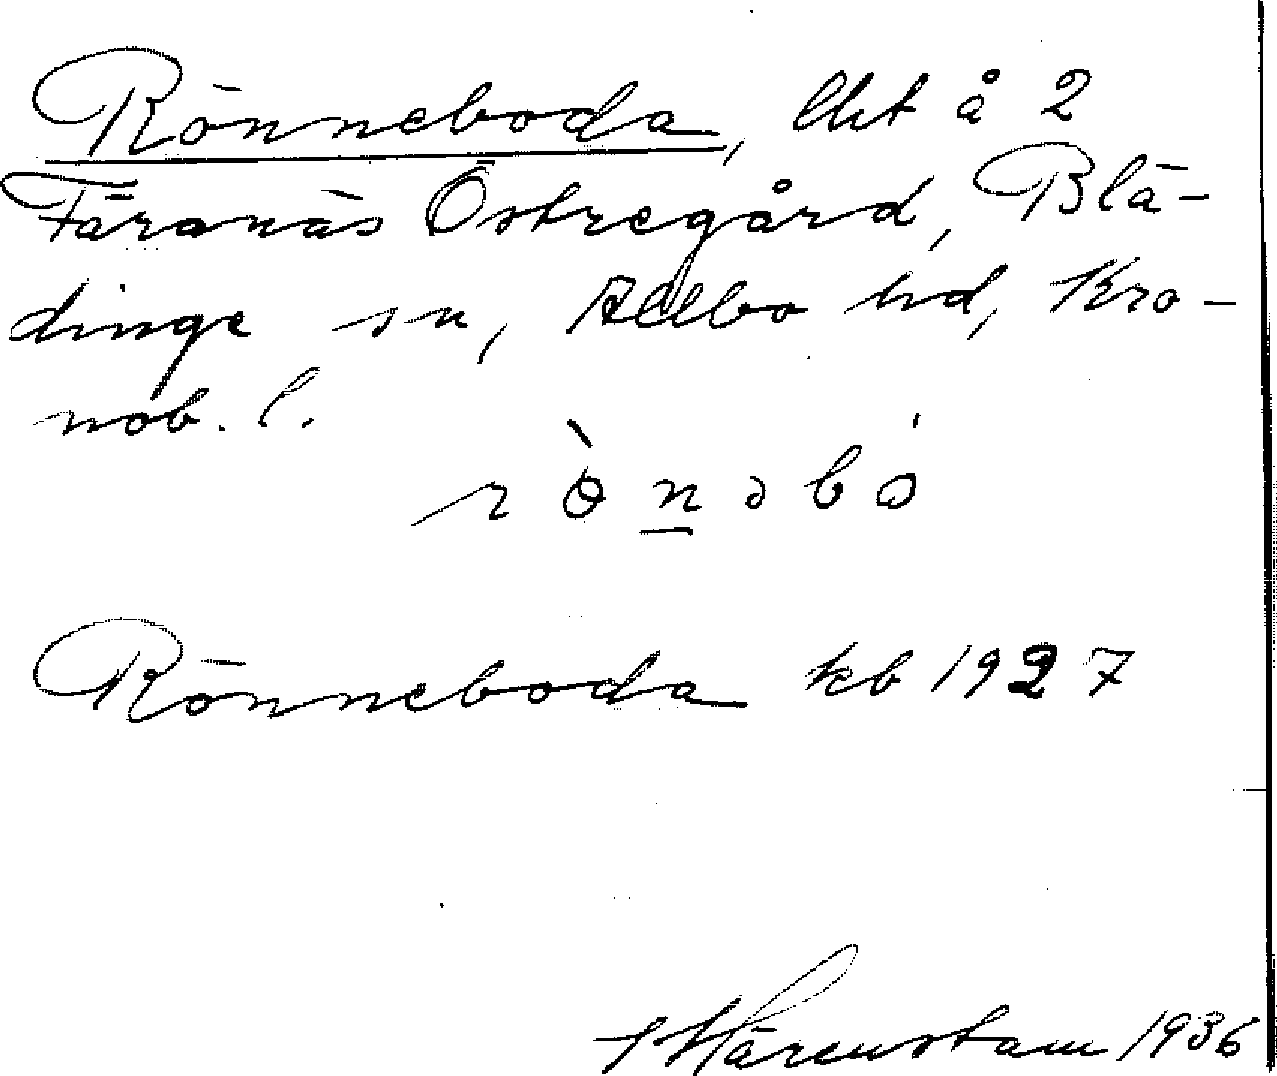 Rönneboda, lht å 2
Färanäs Östregård, Blä-
dinge sn, Allbo hd, Kro-
nob. l.
rònəbó
Rönneboda kb 1927
Härenstam 1936